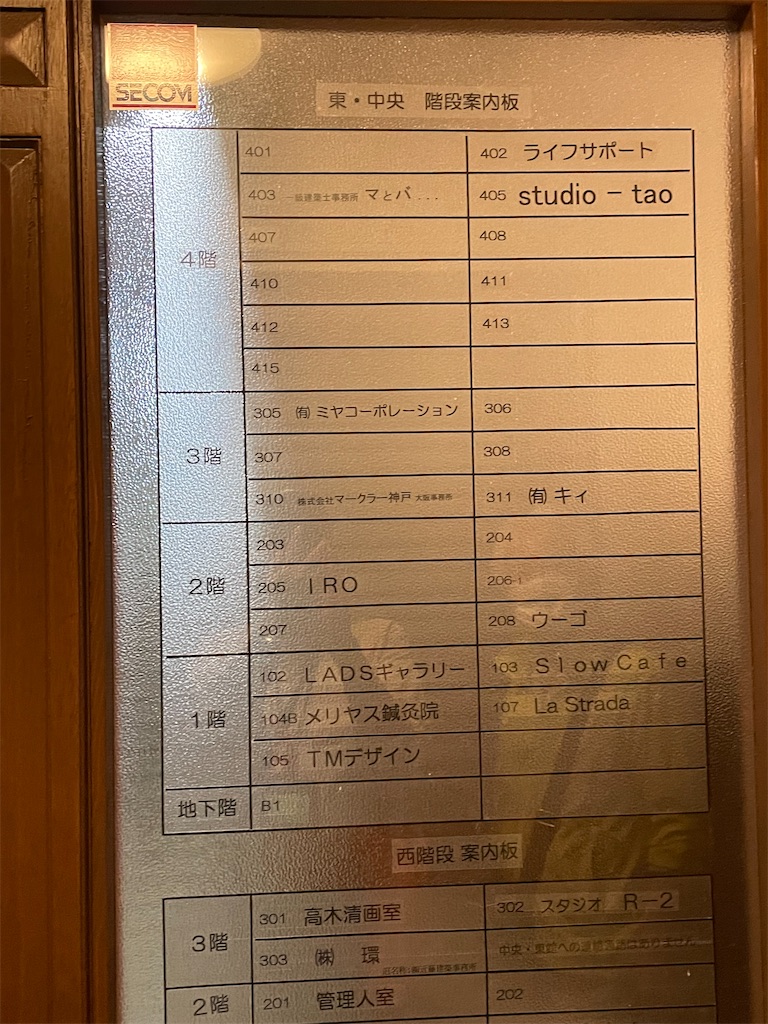 SECOM
東・中央 階段案内板
4階
401
402 ライフサポート
403 一級建築士事務所 マとバ...
405 studio － tao
407
408
410
411
412
413
415
3階
305 ㈲ ミヤコーポレーション
306
307
308
310 株式会社マークラー神戸 大阪事務所
311 ㈲ キィ
2階
203
204
205 ＩＲＯ
206-1
207
208 ウーゴ
1階
102 ＬＡＤＳギャラリー
103 Ｓｌｏｗ Ｃａｆｅ
104B メリヤス鍼灸院
107 La Strada
105 ＴＭデザイン
地下階
B1
西階段 案内板
3階
301 高木清画室
302 スタジオ Ｒ－２
303 ㈱ 環
中央・東館への
2階
201 管理人室
202